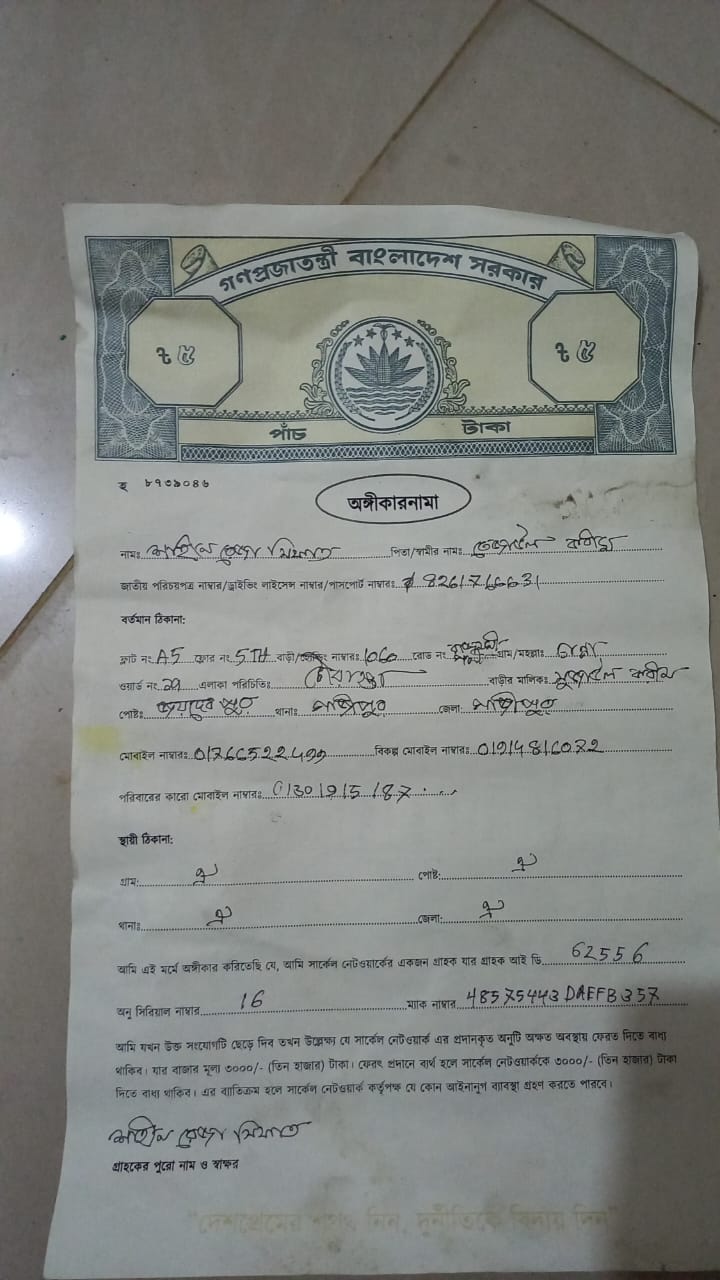 গণপ্রজাতন্ত্রী বাংলাদেশ সরকার
৳ ৫ ৳ ৫
পাঁচ টাকা
হ ৮৭৩৯০৪৬
অঙ্গীকারনামা
নামঃ পিতা/স্বামীর নামঃ
জাতীয় পরিচয়পত্র নাম্বার/ড্রাইভিং লাইসেন্স নাম্বার/পাসপোর্ট নাম্বারঃ 8261766631
বর্তমান ঠিকানা:
ফ্লাট নং A5 ফ্লোর নং 5TH বাড়ী/ নাম্বারঃ 1060 রোড নং গ্রাম/মহল্লাঃ
ওয়ার্ড নং 29 এলাকা পরিচিতিঃ বাড়ীর মালিকঃ
পোষ্টঃ জয়দেব পুর থানাঃ গাজীপুর জেলা: গাজীপুর
মোবাইল নাম্বারঃ 01766522499 বিকল্প মোবাইল নাম্বারঃ 01914816072
পরিবারের কারো মোবাইল নাম্বারঃ 01301915187
স্থায়ী ঠিকানা:
গ্রাম: ঐ পোষ্ট: ঐ
থানাঃ ঐ জেলা: ঐ
আমি এই মর্মে অঙ্গীকার করিতেছি যে, আমি সার্কেল নেটওয়ার্কের একজন গ্রাহক যার গ্রাহক আই ডি 62556
অনু সিরিয়াল নাম্বার 16 ম্যাক নাম্বার 48575443DAEFB357
আমি যখন উক্ত সংযোগটি ছেড়ে দিব তখন উল্লেক্ষ্য যে সার্কেল নেটওয়ার্ক এর প্রদানকৃত অনুটি অক্ষত অবস্থায় ফেরত দিতে বাধ্য
থাকিব। যার বাজার মূল্য ৩০০০/- (তিন হাজার) টাকা। ফেরৎ প্রদানে ব্যর্থ হলে সার্কেল নেটওয়ার্ককে ৩০০০/- (তিন হাজার) টাকা
দিতে বাধ্য থাকিব। এর ব্যতিক্রম হলে সার্কেল নেটওয়ার্ক কর্তৃপক্ষ যে কোন আইনানুগ ব্যাবস্থা গ্রহণ করতে পারবে।
গ্রাহকের পুরো নাম ও স্বাক্ষর
"দেশপ্রেমের শপথ নিন, দুর্নীতিকে বিদায় দিন"